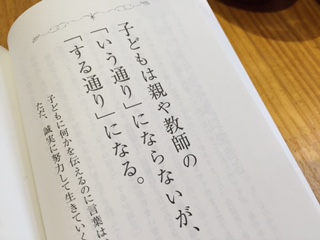 子どもは親や教師の
「いう通り」にならないが、
「する通り」になる。
子どもに何かを伝えるのに言葉は
ただ、誠実に努力して生きていく